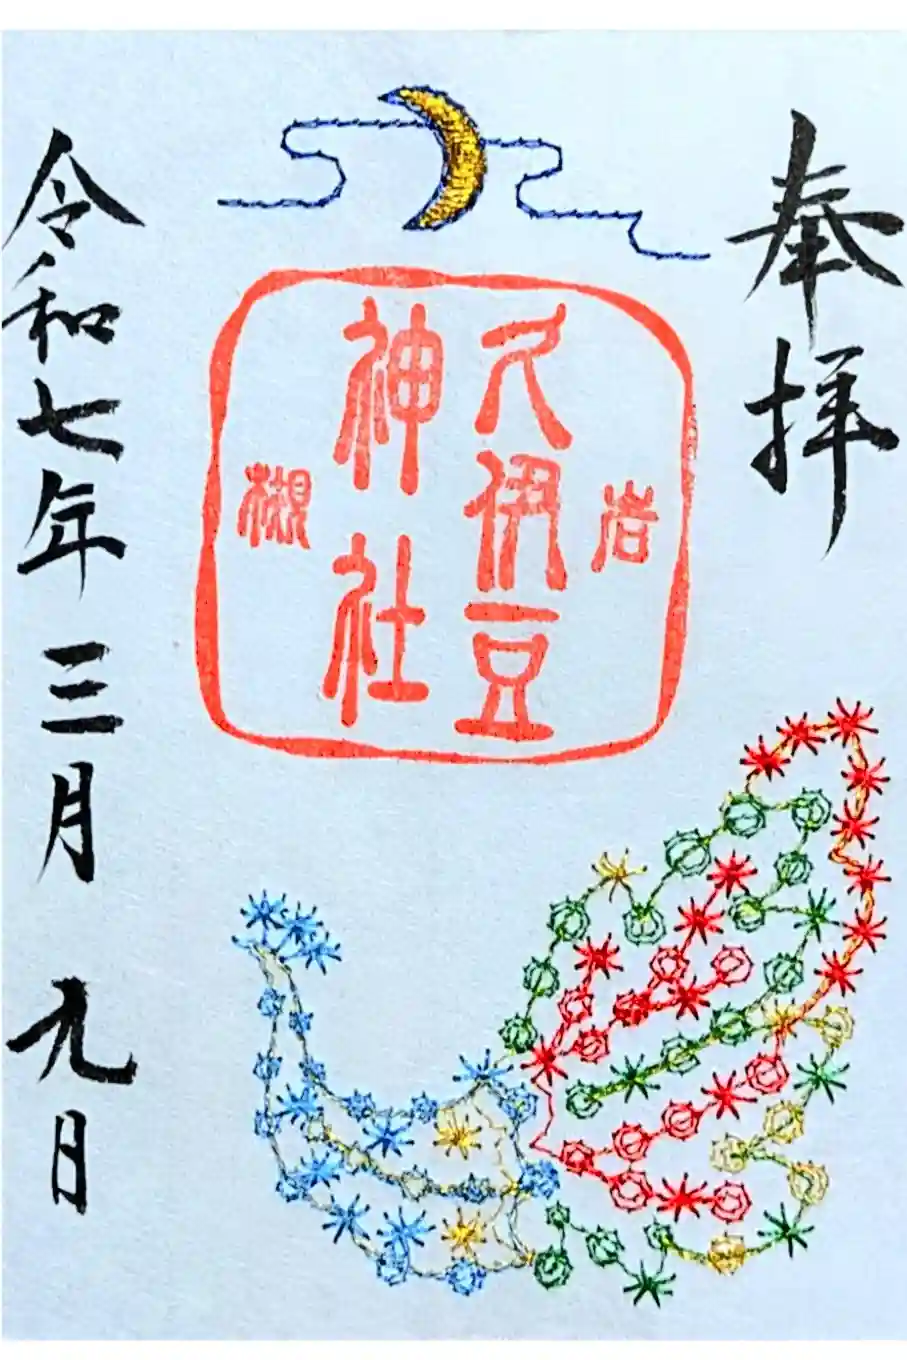 奉拝
岩
久伊豆
神社
槻
令和七年三月九日